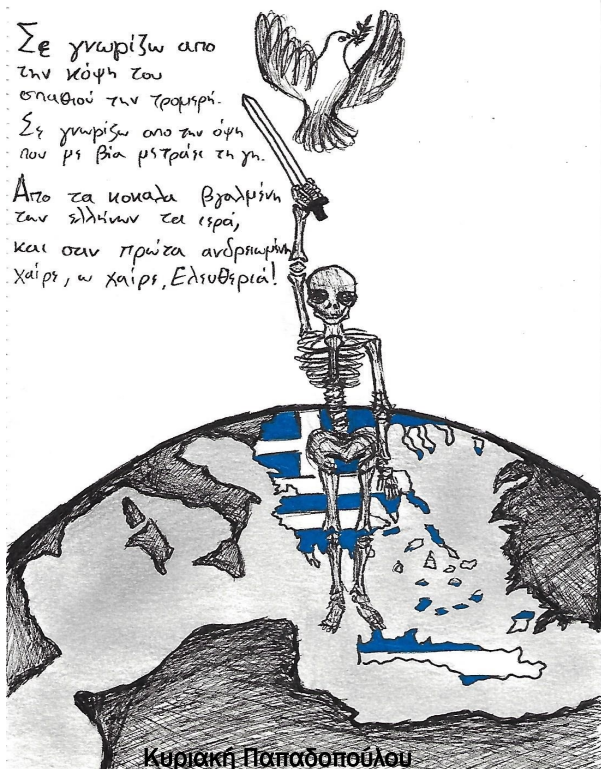 Σε γνωρίζω απο
την κόψη του
σπαθιού την τρομερή.
Σε γνωρίζω απο την όψη
που με βία μετράει τη γη.
Απο τα κοκαλα βγαλμένη
των ελλήνων τα ιερά,
και σαν πρώτα ανδρειωμένη
χαίρε, ω χαίρε, Ελευθεριά!
Κυριακή Παπαδοπούλου